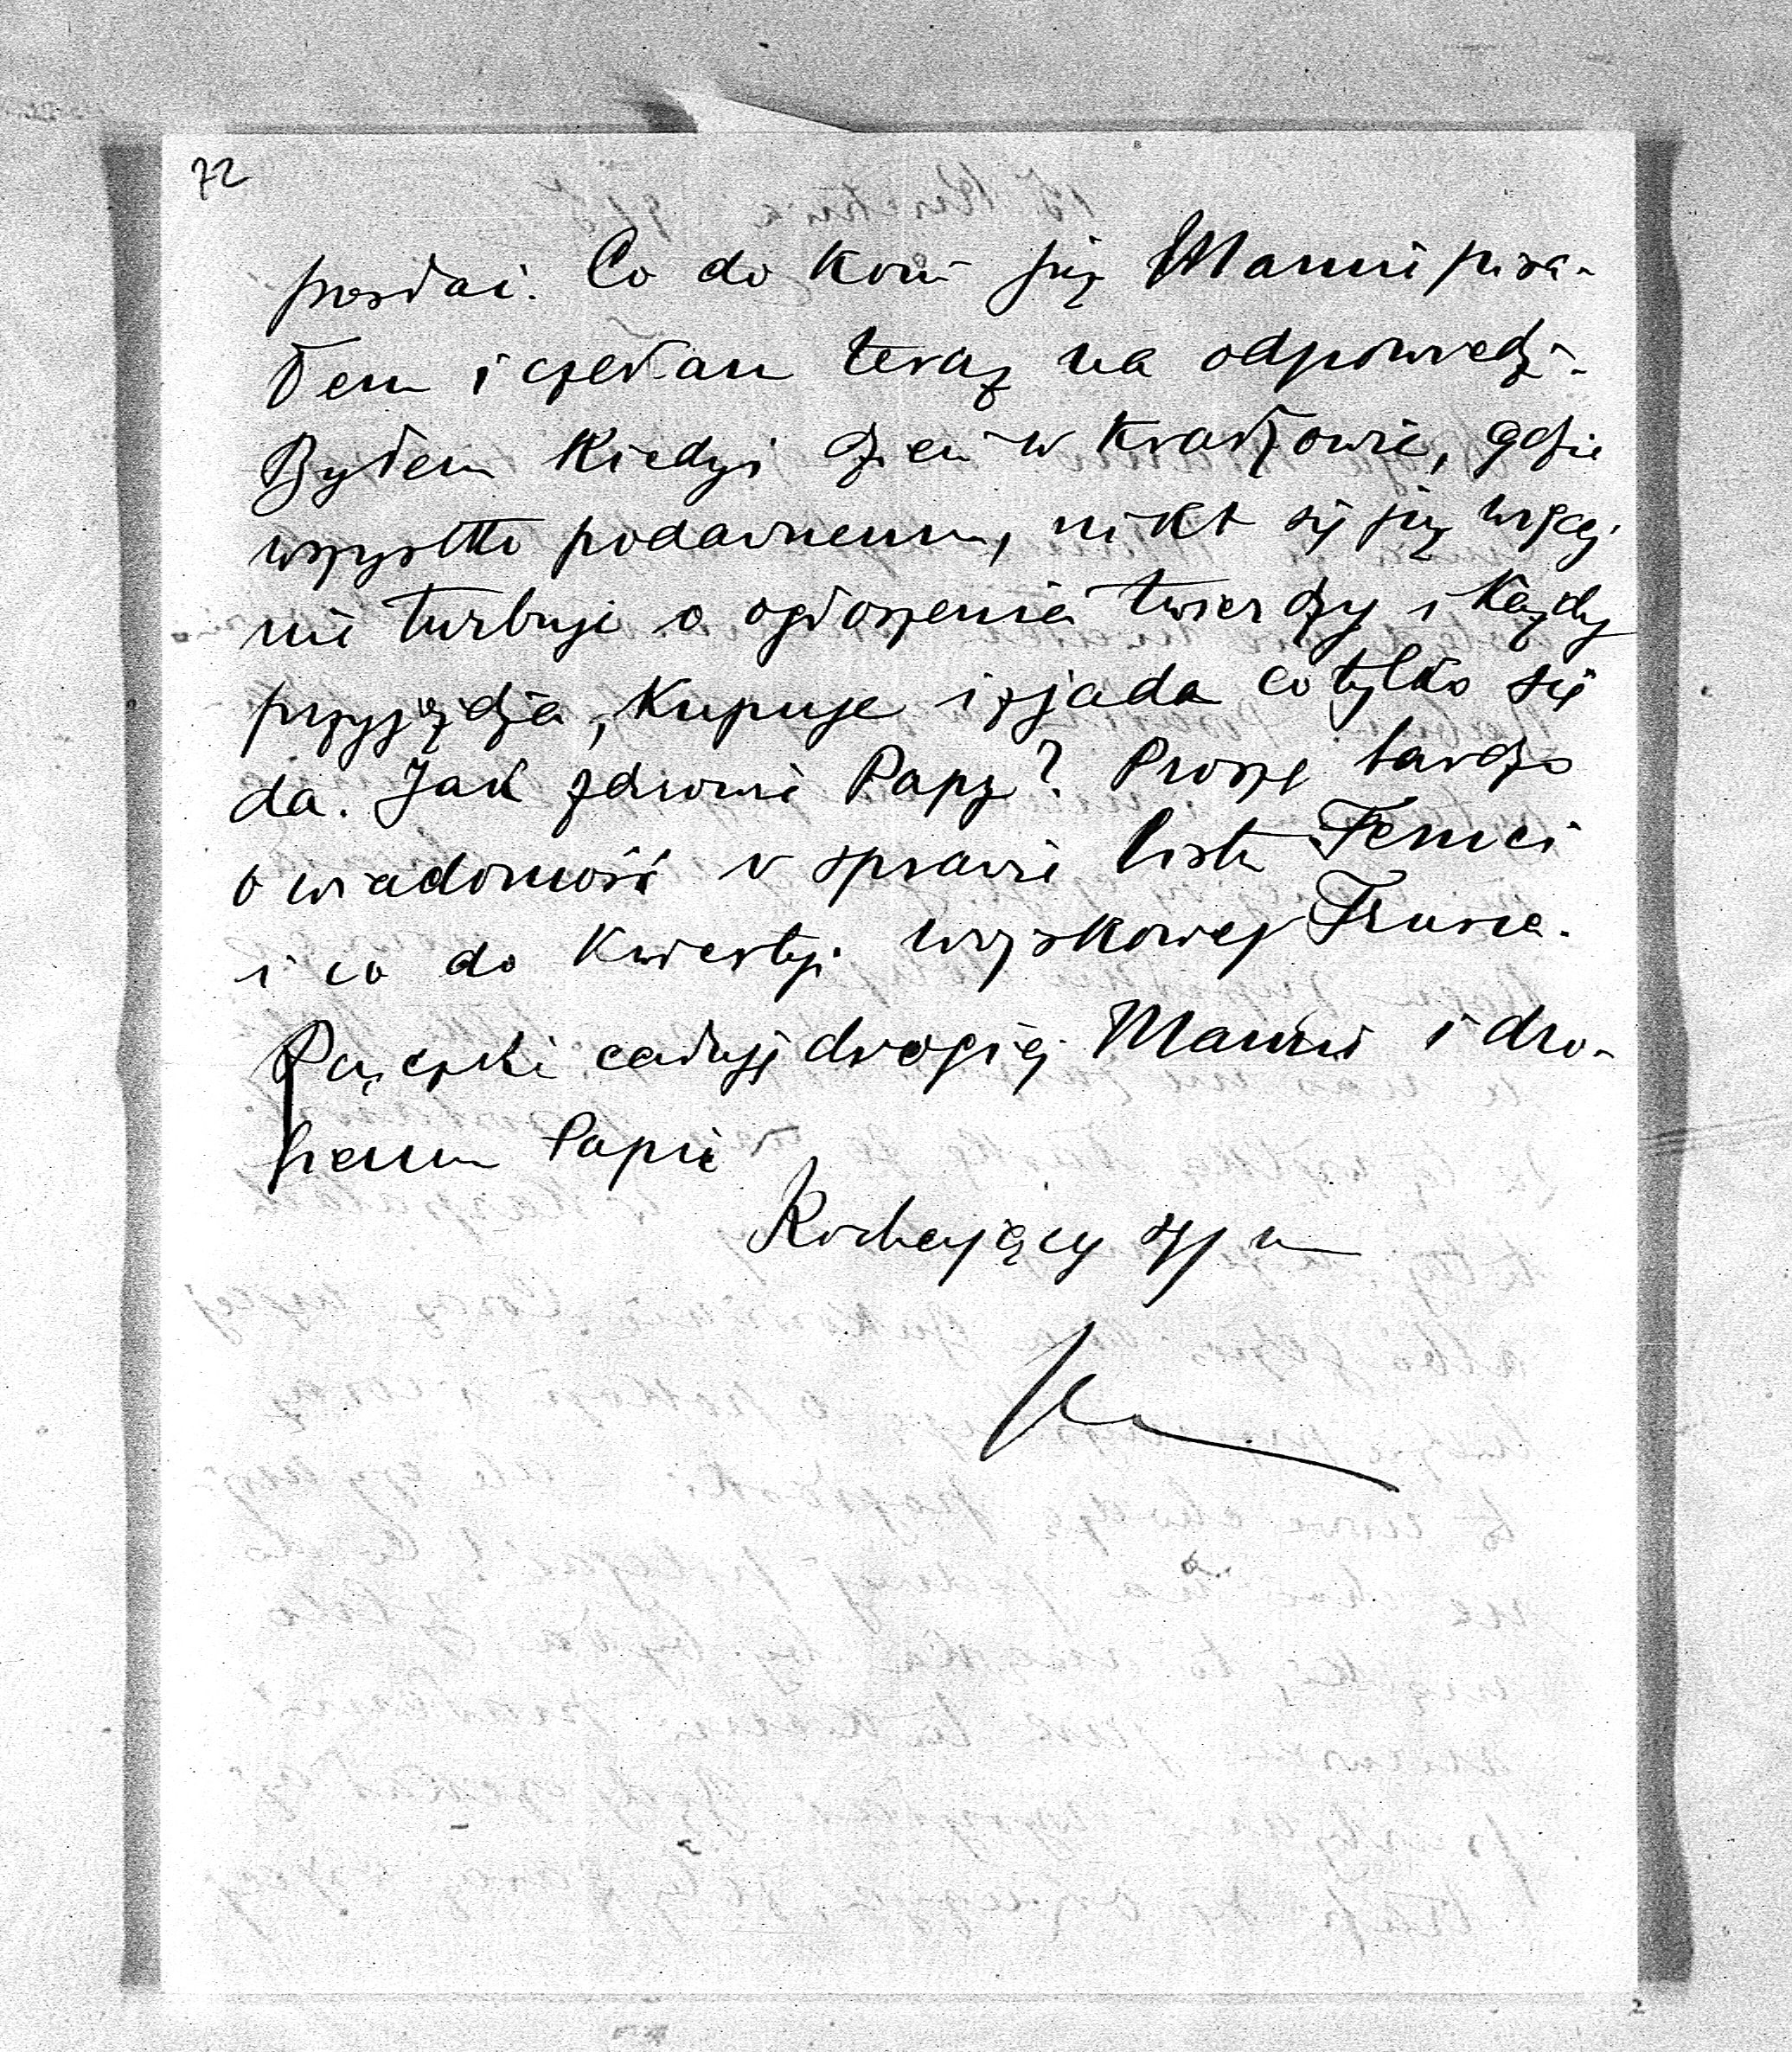 72
posłać. Co do koni już Mamni pisa-
łem i czekam teraz na odpowiedź.
Byłem kiedyś dzień w Krakowie, gdzie
wszystko podawnemu, nikt się już więcej
nie turbuje o ogłoszenia twierdzy i każdy
przyjeżdża, kupuje i zjada co tylko się
da. Jak zdrowie Papy? Proszę bardzo
o wiadomość w sprawie listu
i co do kwestyi wojskowej
Rączęki całuję drogiej Mamni i dro-
giemu Papie
Kochający syn